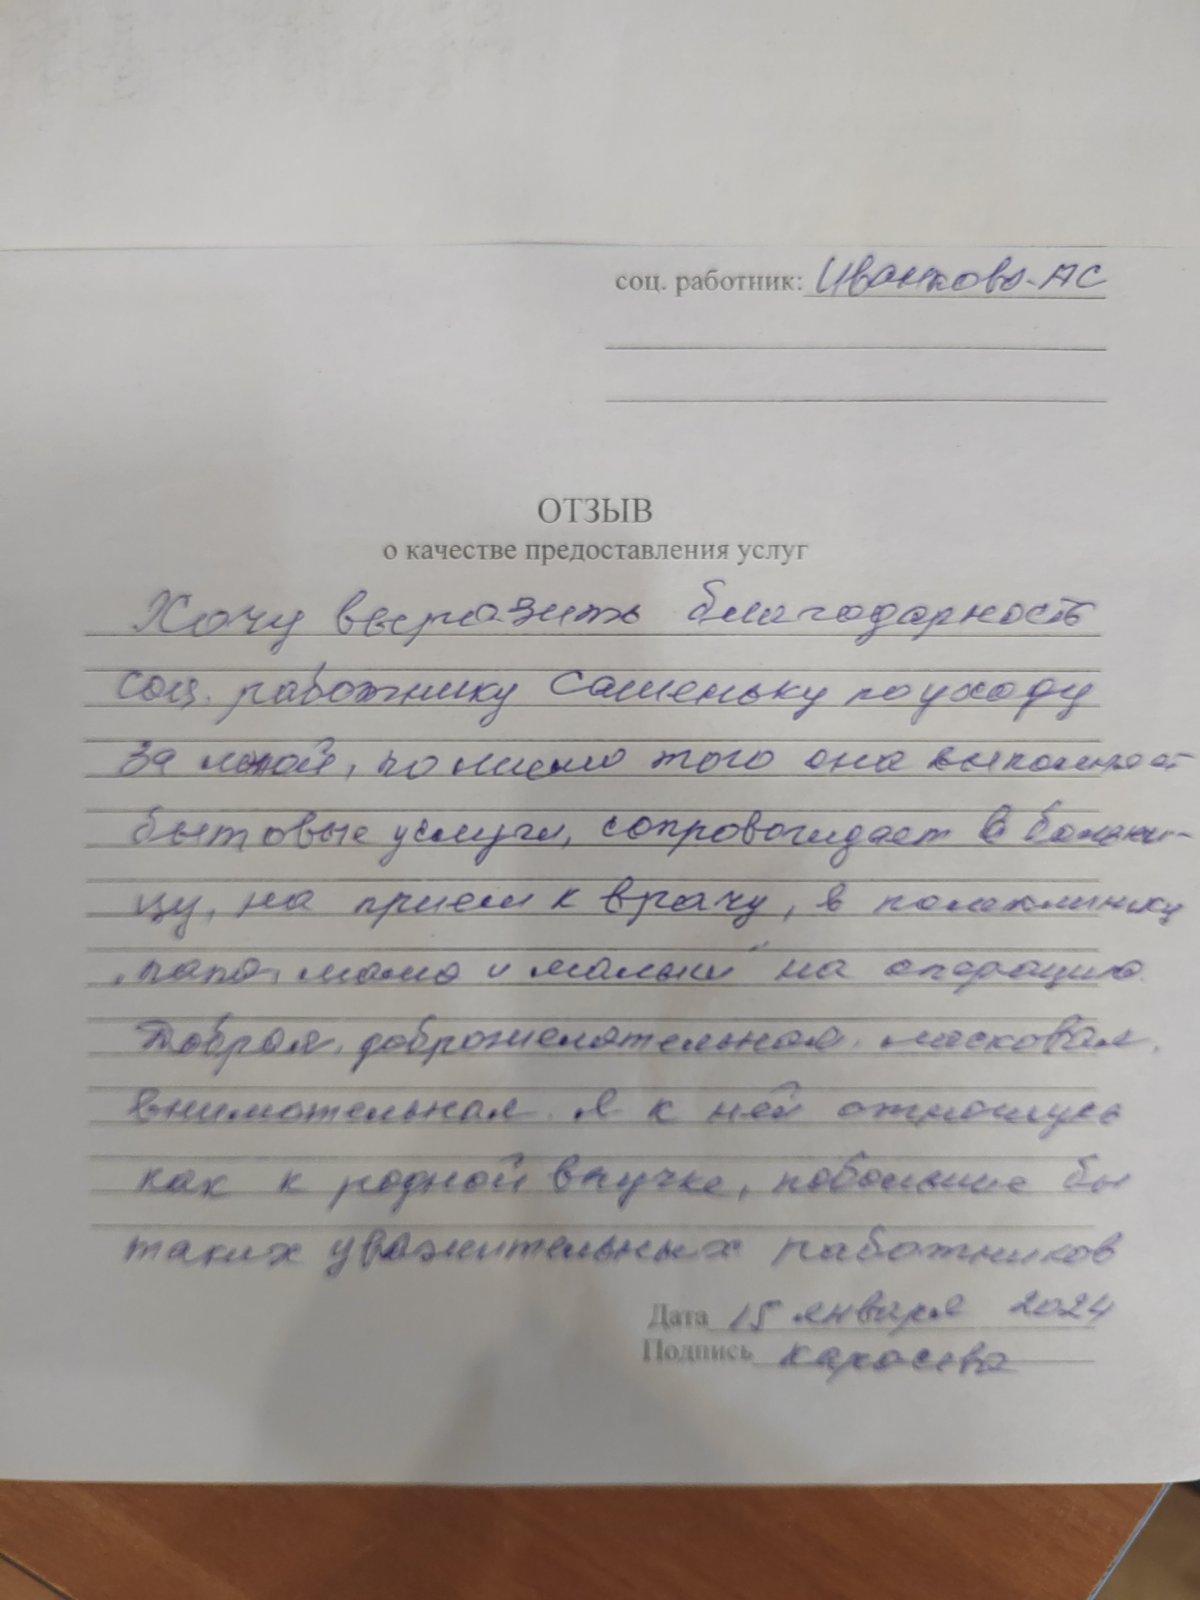 соц. работник: Иванкова АС
ОТЗЫВ
о качестве предоставления услуг
Хочу выразить благодарность
соц. работнику Сашеньку по уходу
за мной, помимо того она выполняет
бытовые услуги, сопровождает в больни-
цу, на прием к врачу, в поликлинику
"папа, мама и малыш" на операцию.
Добрая, доброжелательная, ласковая,
внимательная. Я к ней отношусь
как к родной внучке, побольше бы
таких уважительных работников
Дата 15 января 2024
Подпись